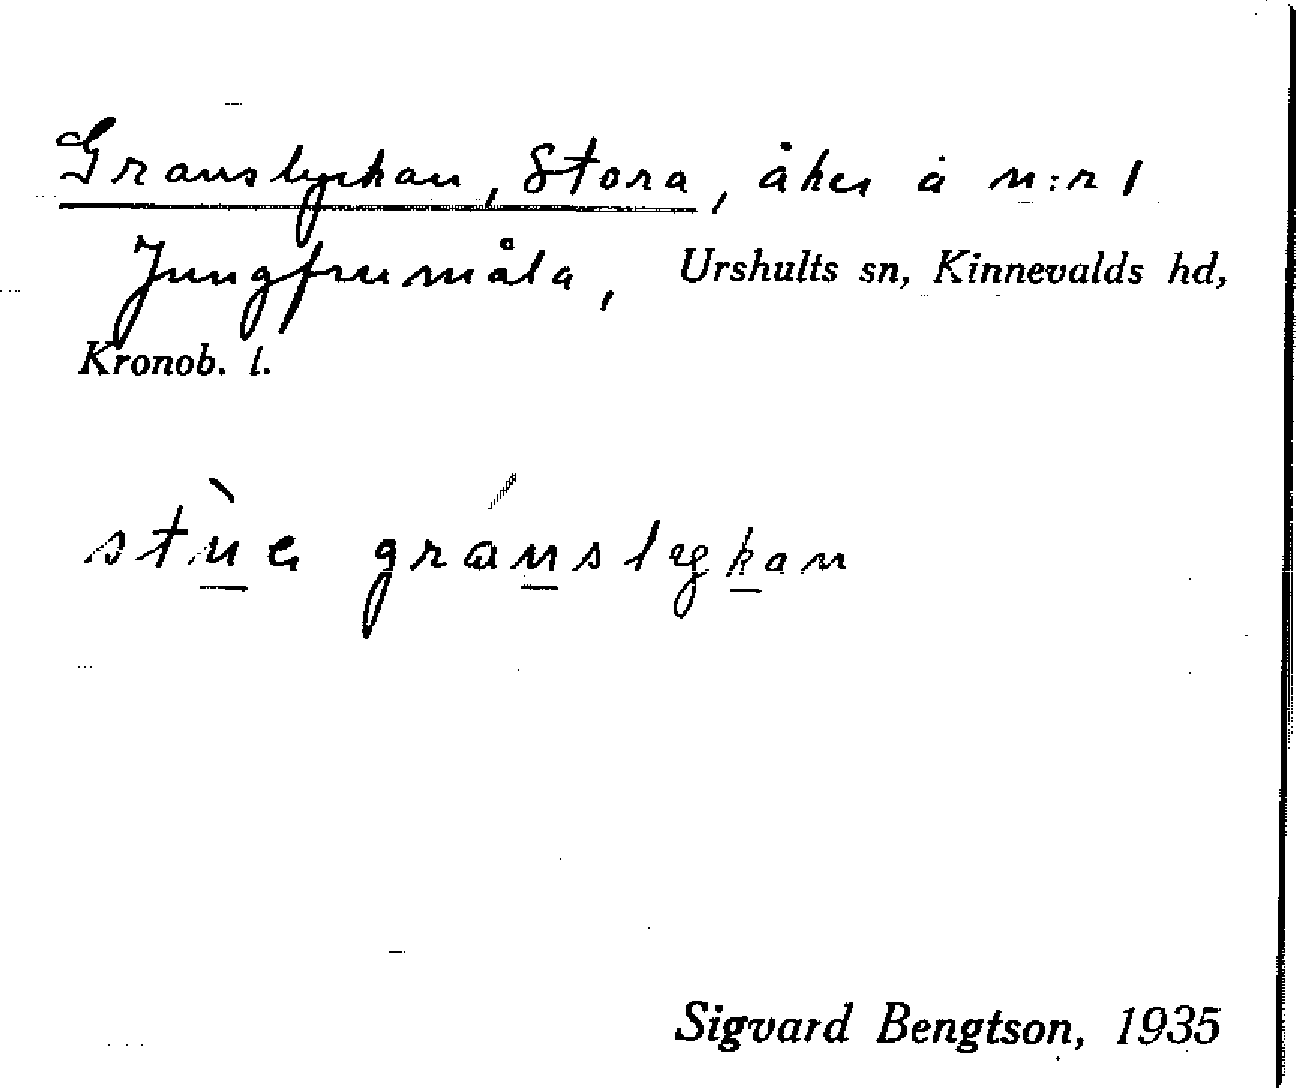 Granslyckan, Stora, åker å n:r 1
Jungfrumåla, Urshults sn, Kinnevalds hd,
Kronob. l.
Sigvard Bengtson, 1935